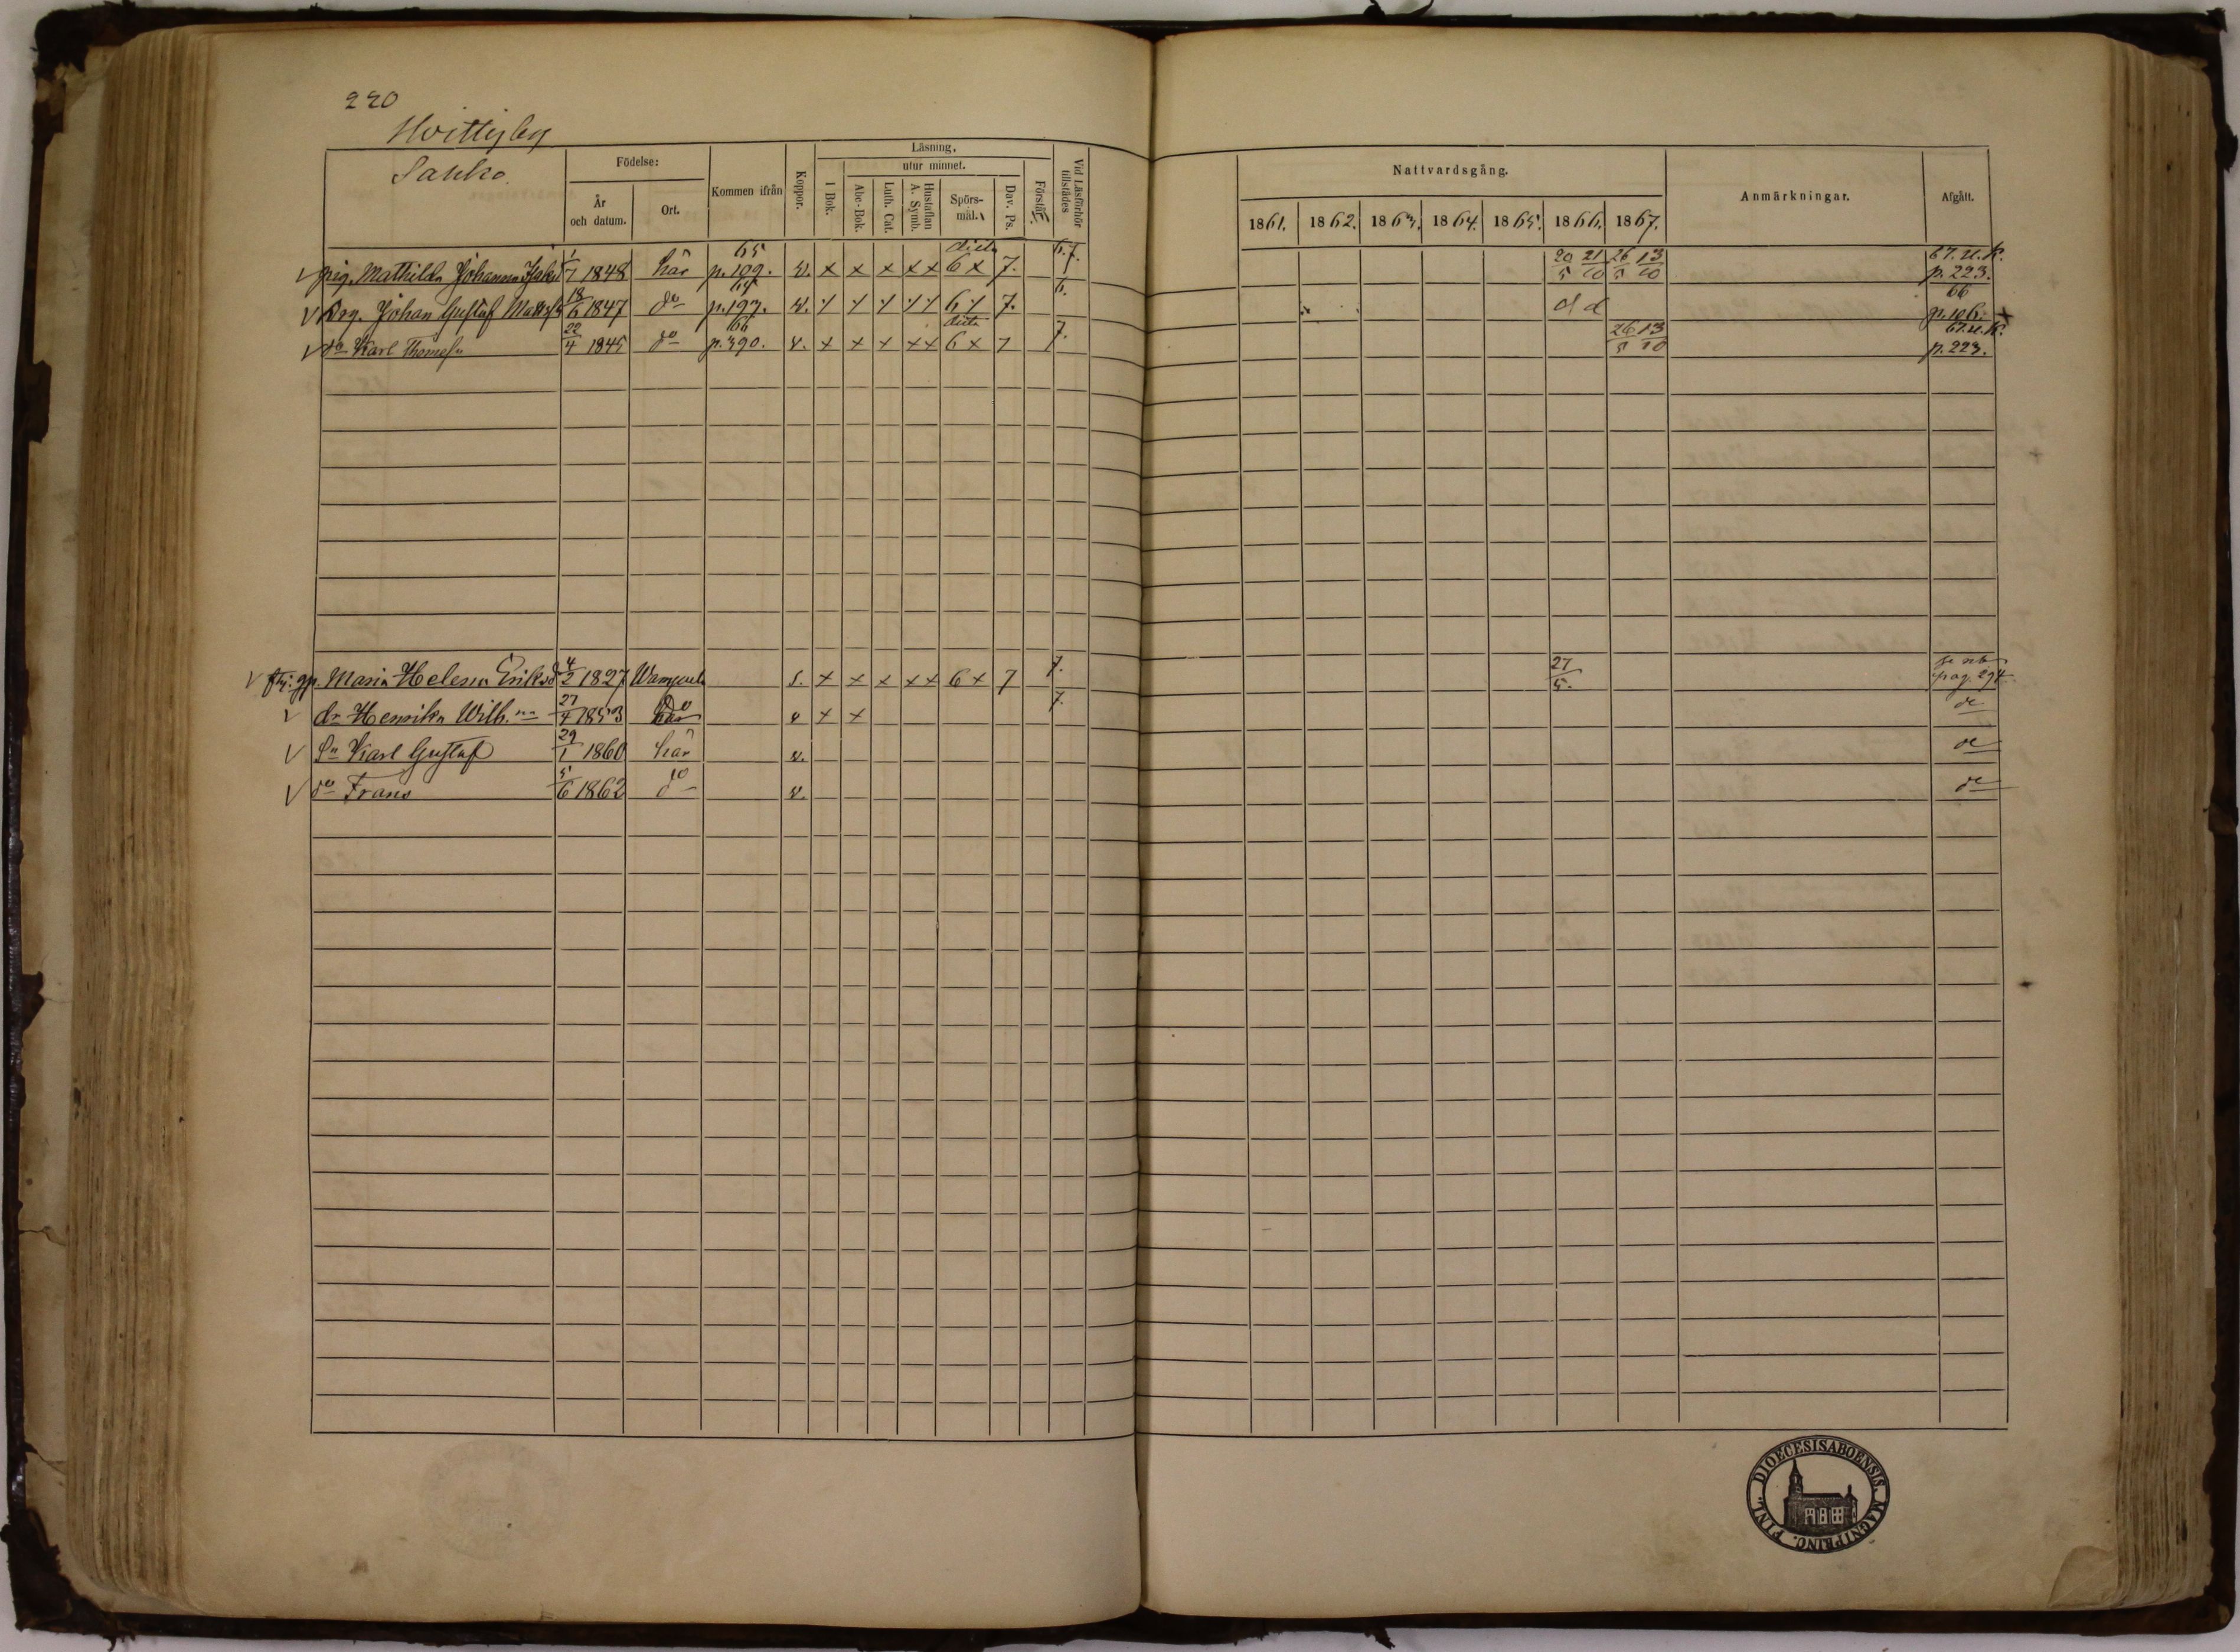 220
Hvittisby
Sahko
Födelse:
År och datum.
Ort.
Kommen ifrån
Koppor.
Läsning.
I Bok.
utur minnet.
Abc-Bok.
Luth. Cat.
Hustaflan A. Symb.
Spörsmål.
Dav. Ps.
Förstår
Vid Läsförhör tillstädes
Nattvardsgång.
1861. 1862. 1863. 1864. 1865. 1866. 1867.
Anmärkningar.
Afgått.
v pig. Mathilda Johanna 1/7 1848 här 65 p. 109. v. x x x x x 6 x 7. 6.7. 20/5 21/10 26/5 13/10 67. u. K. p. 223.
v Drg. Johan Gustaf Mattss 18/6 1847 do p. 197. v. 6 7. 6. d d 66 p. 106.
v do Karl Thomass 22/4 1845 do 66 p. 390. v. x x x x x 6 x 7 7. 26/5 13/10 67. u. K. p. 223.
v gp. Maria Helena Eriksd 4/2 1827 s. x x x x x 6 x 7 7. 27/5. pag. 294
v dr Henrika Wilh. 27/4 1853 do v x x 7. do
v Sn Karl Gustaf 29/1 1860 här v. do
v do Frans 5/6 1862 do v. do
DIOECESIS ABOENSIS. MAGNI PRINC. FINL.